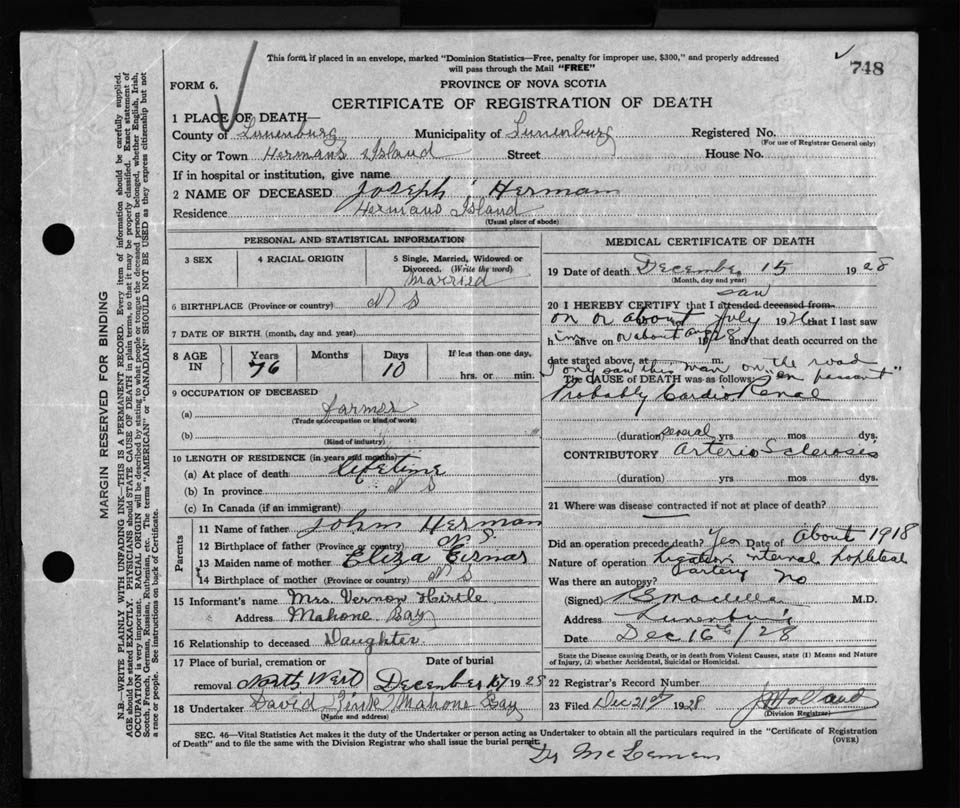 This form if placed in an envelope, marked "Dominion Statistics—Free, penalty for improper use, $300," and properly addressed
will pass through the Mail "FREE"
748
FORM 6.
PROVINCE OF NOVA SCOTIA
CERTIFICATE OF REGISTRATION OF DEATH
1 PLACE OF DEATH—
County of Lunenburg Municipality of Lunenburg Registered No.
(For use of Registrar General only)
City or Town Herman's Island Street House No.
If in hospital or institution, give name
2 NAME OF DECEASED Joseph Herman
Residence Hermans Island
(Usual place of abode)
PERSONAL AND STATISTICAL INFORMATION
3 SEX 4 RACIAL ORIGIN 5 Single, Married, Widowed or
Divorced. (Write the word)
Married
6 BIRTHPLACE (Province or country) N S
7 DATE OF BIRTH (month, day and year)
8 AGE IN Years Months Days If less than one day,
76 10 hrs. or min.
9 OCCUPATION OF DECEASED
(a) farmer
(Trade or occupation or kind of work)
(b)
(Kind of industry)
10 LENGTH OF RESIDENCE (in years and months)
(a) At place of death lifetime
(b) In province N S
(c) In Canada (if an immigrant)
Parents
11 Name of father John Herman
12 Birthplace of father (Province or country) N.S.
13 Maiden name of mother Eliza
14 Birthplace of mother (Province or country) N S
15 Informant's name Mrs. Vernon Hirtle
Address Mahone Bay
16 Relationship to deceased Daughter
17 Place of burial, cremation or Date of burial
removal North West December 17 1928
18 Undertaker David Mahone Bay
(Name and address)
MEDICAL CERTIFICATE OF DEATH
19 Date of death December 15 1928
(Month, day and year)
saw
20 I HEREBY CERTIFY that I attended deceased from
on or about July 192 that I last saw
him alive on or about Aug 1928 and that death occurred on the
date stated above, at m.
I only saw this man on the road
The CAUSE OF DEATH was as follows: "en passant"
Probably Cardio Renal
(duration) several yrs mos dys.
CONTRIBUTORY Arterio Sclerosis
(duration) yrs mos dys.
21 Where was disease contracted if not at place of death?
Did an operation precede death? Yes Date of About 1918
Nature of operation ligation internal popliteal
artery
Was there an autopsy? No
(Signed) M.D.
Address Lunenburg
Date Dec 16th/28
State the Disease causing Death, or in death from Violent Causes, state (1) Means and Nature
of Injury, (2) whether Accidental, Suicidal or Homicidal.
22 Registrar's Record Number
23 Filed Dec 21st 1928
(Division Registrar)
SEC. 46—Vital Statistics Act makes it the duty of the Undertaker or person acting as Undertaker to obtain all the particulars required in the "Certificate of Registration
of Death" and to file the same with the Division Registrar who shall issue the burial permit.
(OVER)
Dr
MARGIN RESERVED FOR BINDING
N.B.—WRITE PLAINLY WITH UNFADING INK—THIS IS A PERMANENT RECORD. Every item of information should be carefully supplied.
AGE should be stated EXACTLY. PHYSICIANS should STATE CAUSE OF DEATH in plain terms, so that it may be properly classified. Exact statement of
OCCUPATION is very important. RACIAL ORIGIN will be described by stating to what people or tongue the deceased person belonged, whether English, Irish,
Scotch, French, German, Russian, Ruthenian, etc. The terms "AMERICAN" or "CANADIAN" SHOULD NOT BE USED as they express citizenship but not
a race or people. See instructions on back of Certificate.